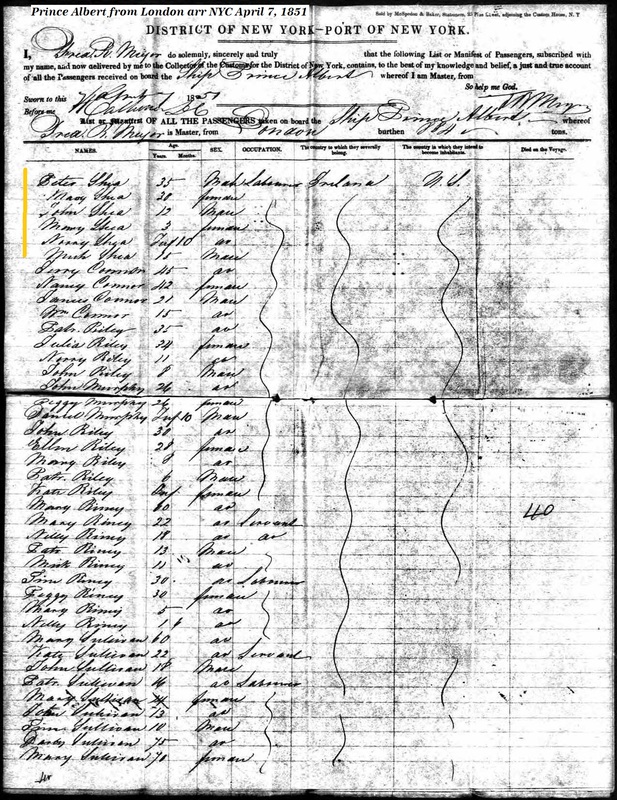 Prince Albert from London arr NYC April 7, 1851
DISTRICT OF NEW YORK—PORT OF NEW YORK.
I, Fred R. Meyer do solemnly, sincerely and truly that the following List or Manifest of Passengers, subscribed with
my name, and now delivered by me to the Collector of the Customs for the District of New York, contains, to the best of my knowledge and belief, a just and true account
of all the Passengers received on board the Ship Prince Albert whereof I am Master, from
So help me God.
Sworn to this 1851
Before me
List or Manifest OF ALL THE PASSENGERS taken on board the Ship Prince Albert whereof
Fred R. Meyer is Master, from London burthen tons.
NAMES. Age. Years. Months. SEX. OCCUPATION. The country to which they severally belong. The country in which they intend to become inhabitants. Died on the Voyage.
Peter Shea 35 Male Labourer Ireland U.S.
Mary Shea 38 female
John Shea 12 Male
Mary Shea 3 female
Norry Shea Inf 10 do
Mich Shea 15 Male
Terry Connor 45 do
Nancy Connor 42 female
James Connor 21 Male
Wm Connor 15 do
Patr. Riley 35 do
Julia Riley 24 female
Norry Riley 11 do
John Riley 8 Male
John Murphy 26 do
Peggy Murphy 26 female
Daniel Murphy Inf 10 Male
John Riley 38 do
Ellen Riley 28 female
Mary Riley 8 do
Patr. Riley 6 Male
Kate Riley Inf female
Mary Riney 60 do
Mary Riney 22 do Servant
Nelly Riney 18 do do
Patr Riney 13 Male
Mick Riney 11 do
Tim Riney 30 do Labourer
Peggy Riney 30 female
Mary Riney 5 do
Nelly Riney 1 do
Mary Sullivan 60 do
Katy Sullivan 22 do Servant
John Sullivan 18 Male
Patr. Sullivan 16 do Labourer
Mary Sullivan 14 female
Sullivan 13 do
Tim Sullivan 10 Male
Sullivan 75 do
Mary Sullivan 70 female
40
40